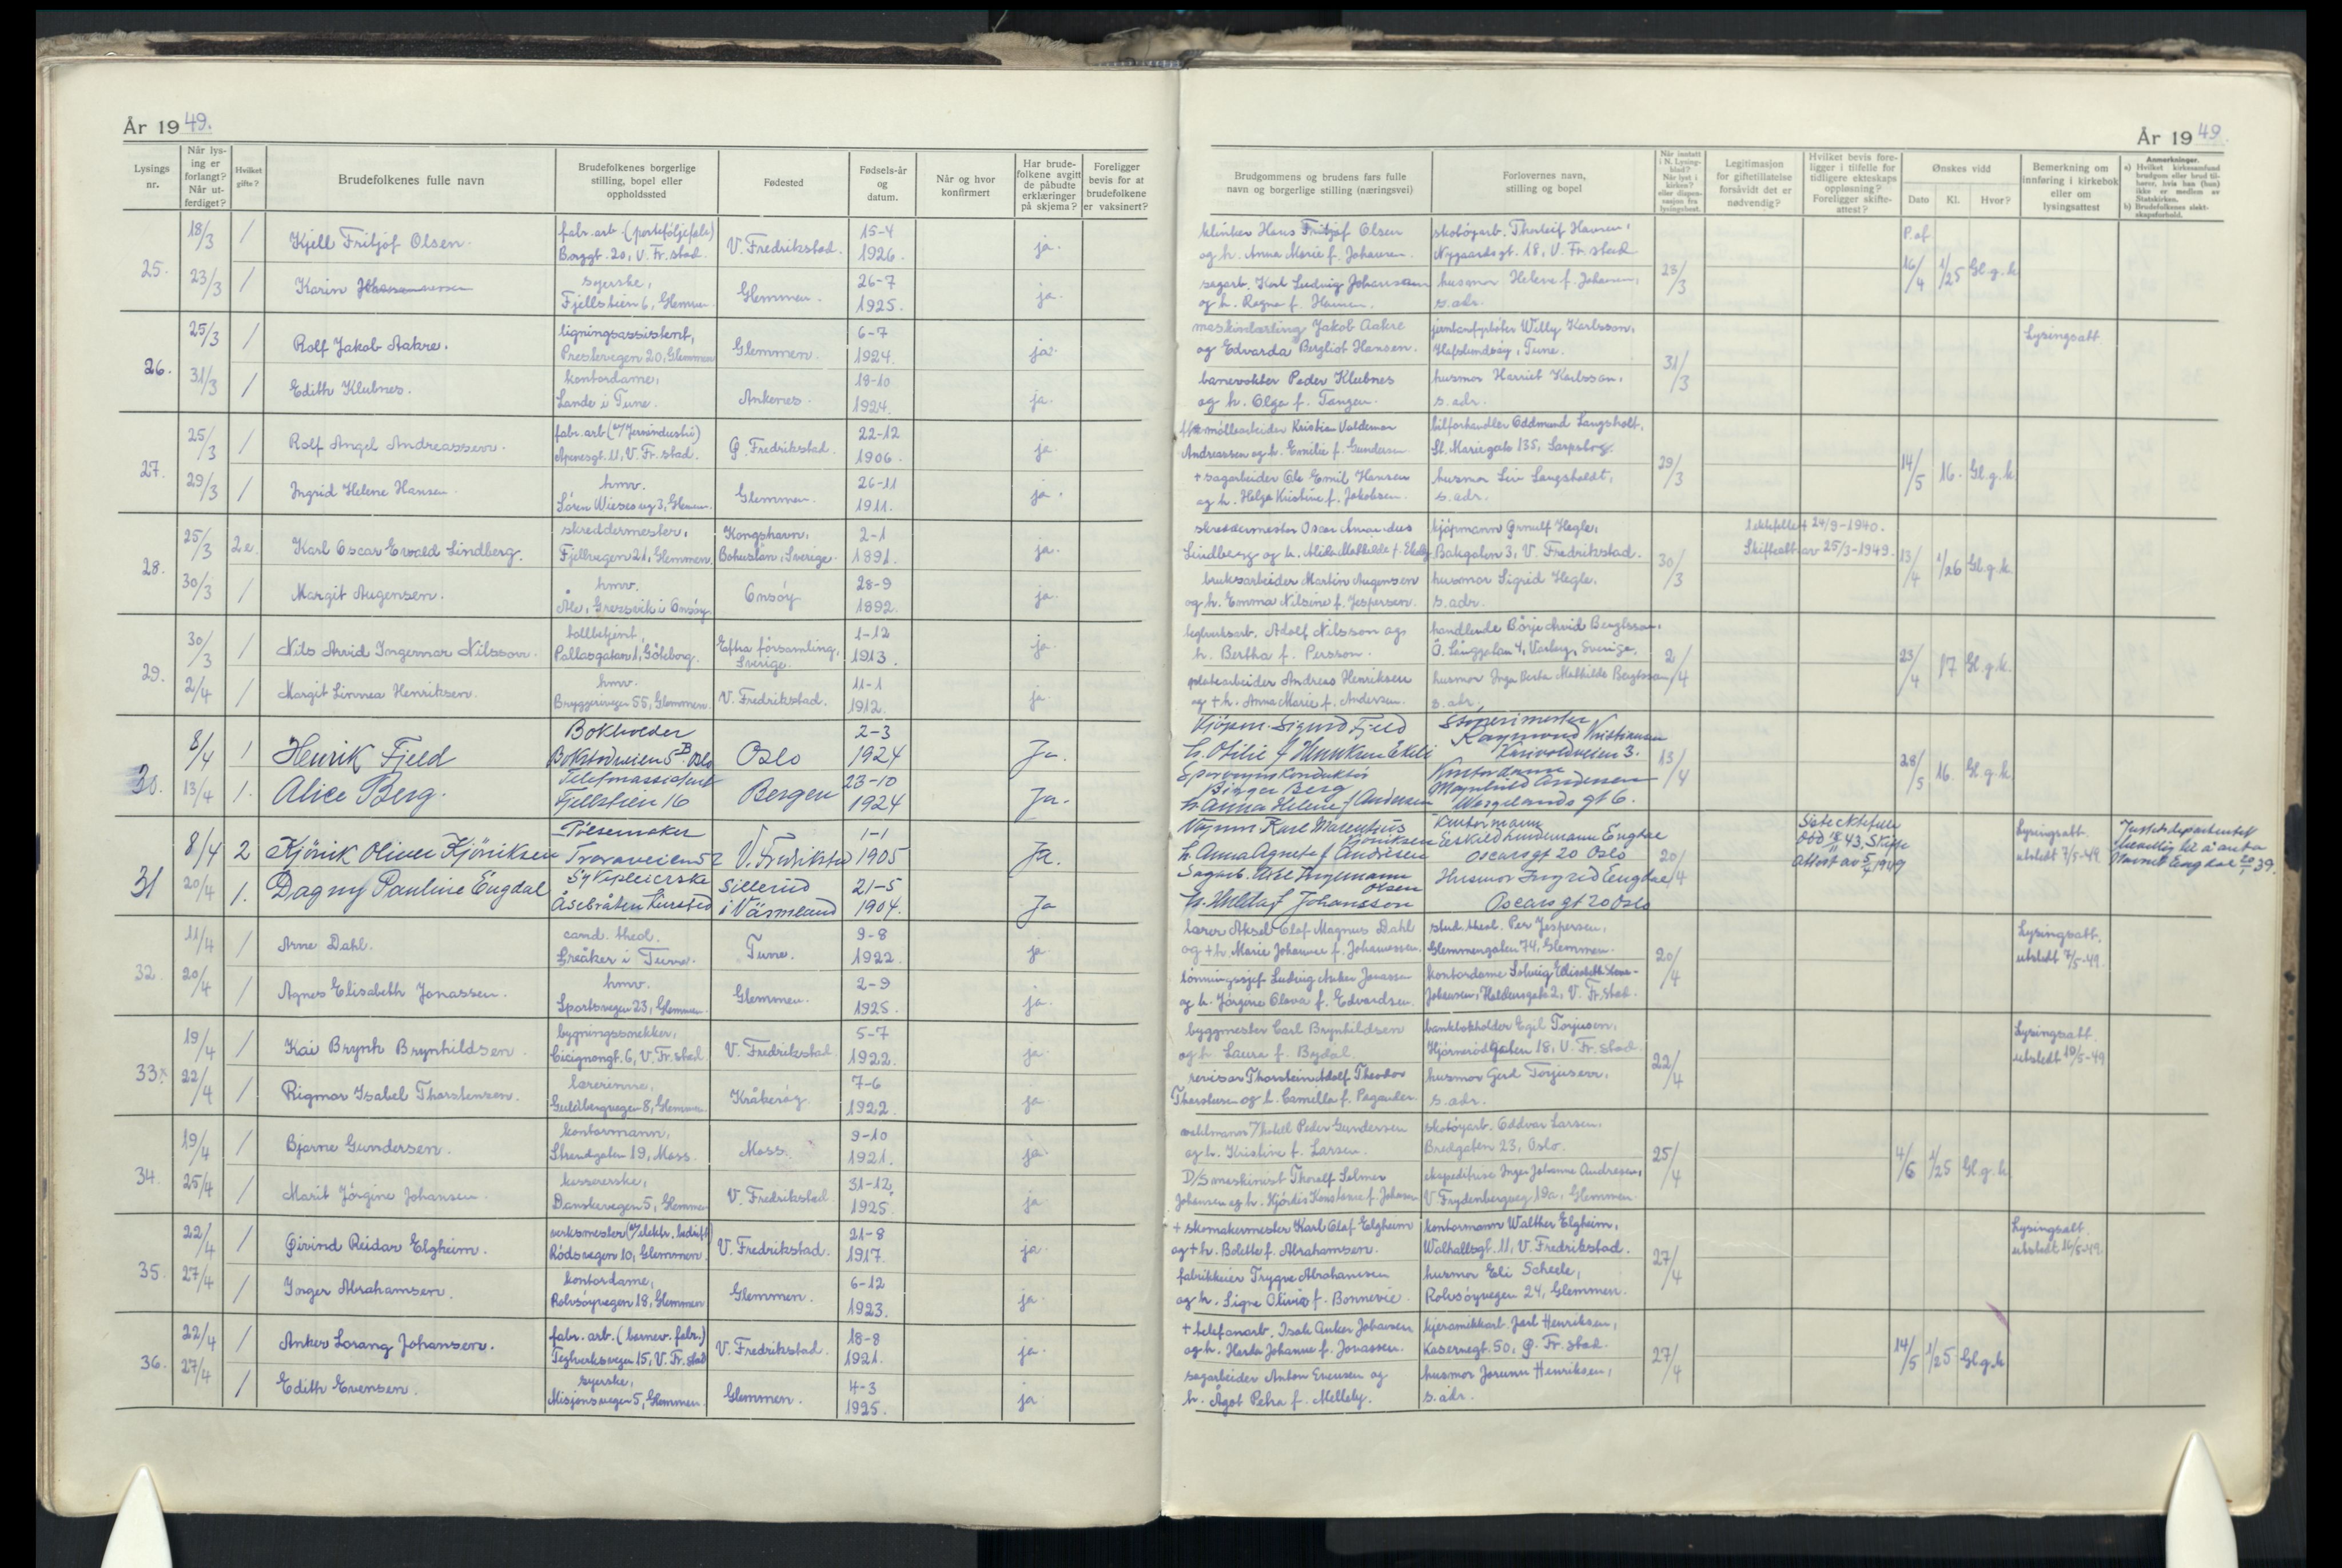 År 19 49.
Lysings nr.
Når lysing er forlangt? Når utferdiget?
Hvilket gifte?
Brudefolkenes fulle navn
Brudefolkenes borgerlige stilling, bopel eller oppholdssted
Fødested
Fødsels-år og datum.
Når og hvor konfirmert
Har brudefolkene avgitt de påbudte erklæringer på skjema?
Foreligger bevis for at brudefolkene er vaksinert?
25. 18/3 1 Kjell Fritjof Olsen. fabr. arb. (porteføljefabr.) Borggt. 20, V. Fr.stad. V. Fredrikstad. 15-4 1926. ja.
23/3 1 Karin syerske, Fjellstien 6, Glemmen. Glemmen. 26-7 1925. ja.
26. 25/3 1 Rolf Jakob Aakre. ligningsassistent, Prestevegen 20, Glemmen Glemmen. 6-7 1924. ja.
31/3 1 Edith Klubnes. kontordame, Lande i Tune. Ankenes. 18-10 1924. ja.
27. 25/3 1 Rolf Angel Andreassen. fabr. arb (v/Jernindustri) Apenesgt. 11, V. Fr.stad. G. Fredrikstad. 22-12 1906. ja.
29/3 1 Ingrid Helene Hansen. hmv. Sören Wiesesveg 3, Glemmen. Glemmen. 26-11 1911. ja.
28. 25/3 2e. Karl Oscar Evald Lindberg. skreddermester, Fjellvegen 21, Glemmen. Kongshavn, Bohuslän, Sverige. 2-1 1891. ja.
30/3 1 Margit Augensen. hmv. Ale, Gressvik i Onsöy. Onsöy. 28-9 1892. ja.
29. 30/3 1 Nils Arvid Ingemar Nilsson. tollbetjent, Pallasgatan 1, Göteborg. Eftra församling. Sverige. 1-12 1913. ja.
2/4 1 Margit Linnea Henriksen. hmv. Bryggerivegen 55, Glemmen. V. Fredrikstad. 11-1 1912. ja.
30. 8/4 1 Henrik Fjeld Bokholder Bokstadveien 5B Oslo Oslo 2-3 1924 Ja.
13/4 1. Alice Berg. Telefonassistent Fjellstien 16 Bergen 23-10 1924 Ja.
31 8/4 2 Kjönik Oliver Kjöniksen Pölsemaker Traraveien 52 V. Fredrikstad 1-1 1905 Ja.
20/4 1. Dagny Pauline Engdal Sykepleierske Åsebråten kursted Sillerud i Värmland 21-5 1904. Ja
32. 11/4 1 Arne Dahl. cand. theol. Greåker i Tune. Tune. 9-8 1922. ja
20/4 1 Agnes Elisabeth Jonassen. hmv. Sportsvegen 23, Glemmen. Glemmen. 2-9 1925. ja.
33. 19/4 1 Kai Brynh Brynhildsen. bygningssnekker, Cicignongt. 6, V. Fr.stad. V. Fredrikstad 5-7 1922. ja.
22/4 1 Rigmor Isabel Thorstensen. lærerinne, Guldbergvegen 8, Glemmen. Kråkeröy. 7-6 1922. ja.
34. 19/4 1 Bjarne Gundersen. kontormann, Strandgaten 19, Moss. Moss. 9-10 1921. ja.
25/4 1 Marit Jörgine Johansen. kassererske, Danskevegen 5, Glemmen V. Fredrikstad 31-12 1925. ja.
35. 22/4 1 Øivind Reidar Elgheim. verksmester (v/elektr. bedrift) Rödsvegen 10, Glemmen. V. Fredrikstad. 21-8 1917. ja.
27/4 1 Inger Abrahamsen. kontordame, Rolvsöyvegen 18, Glemmen Glemmen. 6-12 1923. ja.
36. 22/4 1 Anker Lorang Johansen. fabr. arb. (barnev. fabr.) Teglverksvegen 15, V. Fr. stad V. Fredrikstad. 18-8 1921. ja.
27/4 1 Edith Evensen. syerske, Misjonsvegen 5, Glemmen. Glemmen. 4-3 1925. ja
År 19 49.
Brudgommens og brudens fars fulle navn og borgerlige stilling (næringsvei)
Forlovernes navn, stilling og bopel
Når inntatt i N. Lysingsblad? Når lyst i kirken? eller dispensasjon fra lysingsbest.
Legitimasjon for giftetillatelse forsåvidt det er nødvendig?
Hvilket bevis foreligger i tilfelle for tidligere ekteskaps oppløsning? Foreligger skifteattest?
Ønskes vidd
Dato Kl. Hvor?
Bemerkning om innføring i kirkebok eller om lysingsattest
Anmerkninger. a) Hvilket kirkesamfund brudgom eller brud tilhører, hvis han (hun) ikke er medlem av Statskirken. b) Brudefolkenes slektskapsforhold.
klinker Hans Fritjof Olsen og h. Anna Marie f. Johansen. skotöyarb. Thorleif Hansen, Nygaardsgt. 18, V. Fr. stad 23/3 P.af. 16/4 1/25 Gl.g.k
sagarb. Karl Ludvig Johansson og h. Ragna f. Hansen. husmor Helene f. Johansen, s. adr.
maskinlærling Jakob Aakre og Edvarda Bergliot Hansen. Willy Karlsson, Hafslundsöy, Tune. 31/3 Lysingsatt.
banevokter Peder Klubnes og h. Olga f. Tangen. husmor Harriet Karlsson, s. adr.
möllearbeider Kristian Valdemar Andreassen og h. Emilie f. Gundersen bilforhandler Oddmund Langsholt, St. Mariegate 135, Sarpsborg. 29/3 14/5 16. Gl.g.k.
+ sagarbeider Ole Emil Hansen og h. Helga Kristine f. Jakobsen. husmor Liv Langsholdt, s. adr.
skreddermester Oscar Amandus Lindberg og h. Mathilde f. kjöpmann Ørnulf Hegle, Bakgaten 3, V. Fredrikstad. 30/3 1 ektefelle + 24/9-1940. Skifteatt. av 25/3-1949. 13/4 1/26 Gl.g.k.
bruksarbeider Martin Augensen og h. Emma Nilsine f. Jespersen. husmor Sigrid Hegle. s. adr.
teglverksarb. Adolf Nilsson og h. Bertha f. Persson. handlende Börje Arvid Bengtsson, Ö. Långgatan 4, Varberg, Sverige. 2/4 23/4 17 Gl.g.k.
platearbeider Andreas Henriksen og + h. Anna Marie f. Andersen. husmor Inga Berta Mathilde Bengtsson s. adr.
Kjöpm. Sigurd Fjeld h. Otilie f Henriksen Ekeli Støperimester Raymond Kristiansen 3. 13/4 28/5 16. Gl.g.k.
Sporvognskonduktör Birger Berg h Anna Helene f Andersen Kontordame Magnhild Andersen Wergelands gt 6.
Vognm Karl Marentius Kjöniksen h. Anna Agnete f Andresen Kontormann Eskild Lindemann Engdal Oscarsgt 20 Oslo 20/4 Siste ektefelle död 18/11 43. Skifteattest av 5/4 1949 Lysingsatt. utstedt 7/5-49. Justisdepartementet bevillig til å anta Navnet Engdal 20/1 39.
Sagarb. Axel Ingemann Olsen h. Hulda f Johansson Husmor Ingrid Engdal Oscars gt 20 Oslo
lærer Aksel Olaf Magnus Dahl og + h. Marie Johanne f. Johannessen. stud. theol. Per Jespersen, Glemmengaten 74, Glemmen. 20/4 Lysingsatt. utstedt 7/5-49.
lönningssjef Ludvig Anker Jonassen og h. Jörgine Olava f. Edvardsen. kontordame Solveig Elisabeth Johansen, Haldensgate 2, V. Fr.stad.
byggmester Carl Brynhildsen og h. Laura f. Bydal. bankbokholder Egil Torjusen, Hjörnerödgaten 18, V. Fr.stad. 22/4 Lysingsatt. utstedt 10/5-49
revisor Thorstein Adolf Theodor Thorstensen og h. Camilla f. Pagander. husmor Gerd Torjusen, s. adr.
Peder Gundersen og h. Kristine f. Larsen. skotöyarb. Oddvar Larsen, Bredgaten 23, Oslo. 25/4 4/6 1/25 Gl.g.k
D/S maskinist Thoralf Salmer Johansen og h. Hjördis Konstanse f. Johnsen ekspeditrise Inger Johanne Andresen, V. Frydenbergveg 19a, Glemmen.
+ skomakermester Karl Olaf Elgheim og + h. Bolette f. Abrahamsen. kontormann Walther Elgheim, Walhallsgt. 11, V. Fredrikstad. 27/4 Lysingsatt. utstedt 16/5-49.
fabrikkeier Trygve Abrahamsen og h. Signe Olivia f. Bonnevie. husmor Eli Scheele, Rolvsöyvegen 24, Glemmen.
+ telefonarb. Isak Anker Johansen og h. Herda Johanne f. Jonassen. kjeramikkarb. Jarl Henriksen, Kasernegt. 50, G. Fr.stad. 27/4 14/5 1/25 Gl.g.k
sagarbeider Anton Evensen og h. Ågot Petra f. Melleby. husmor Jorunn Henriksen, s. adr.